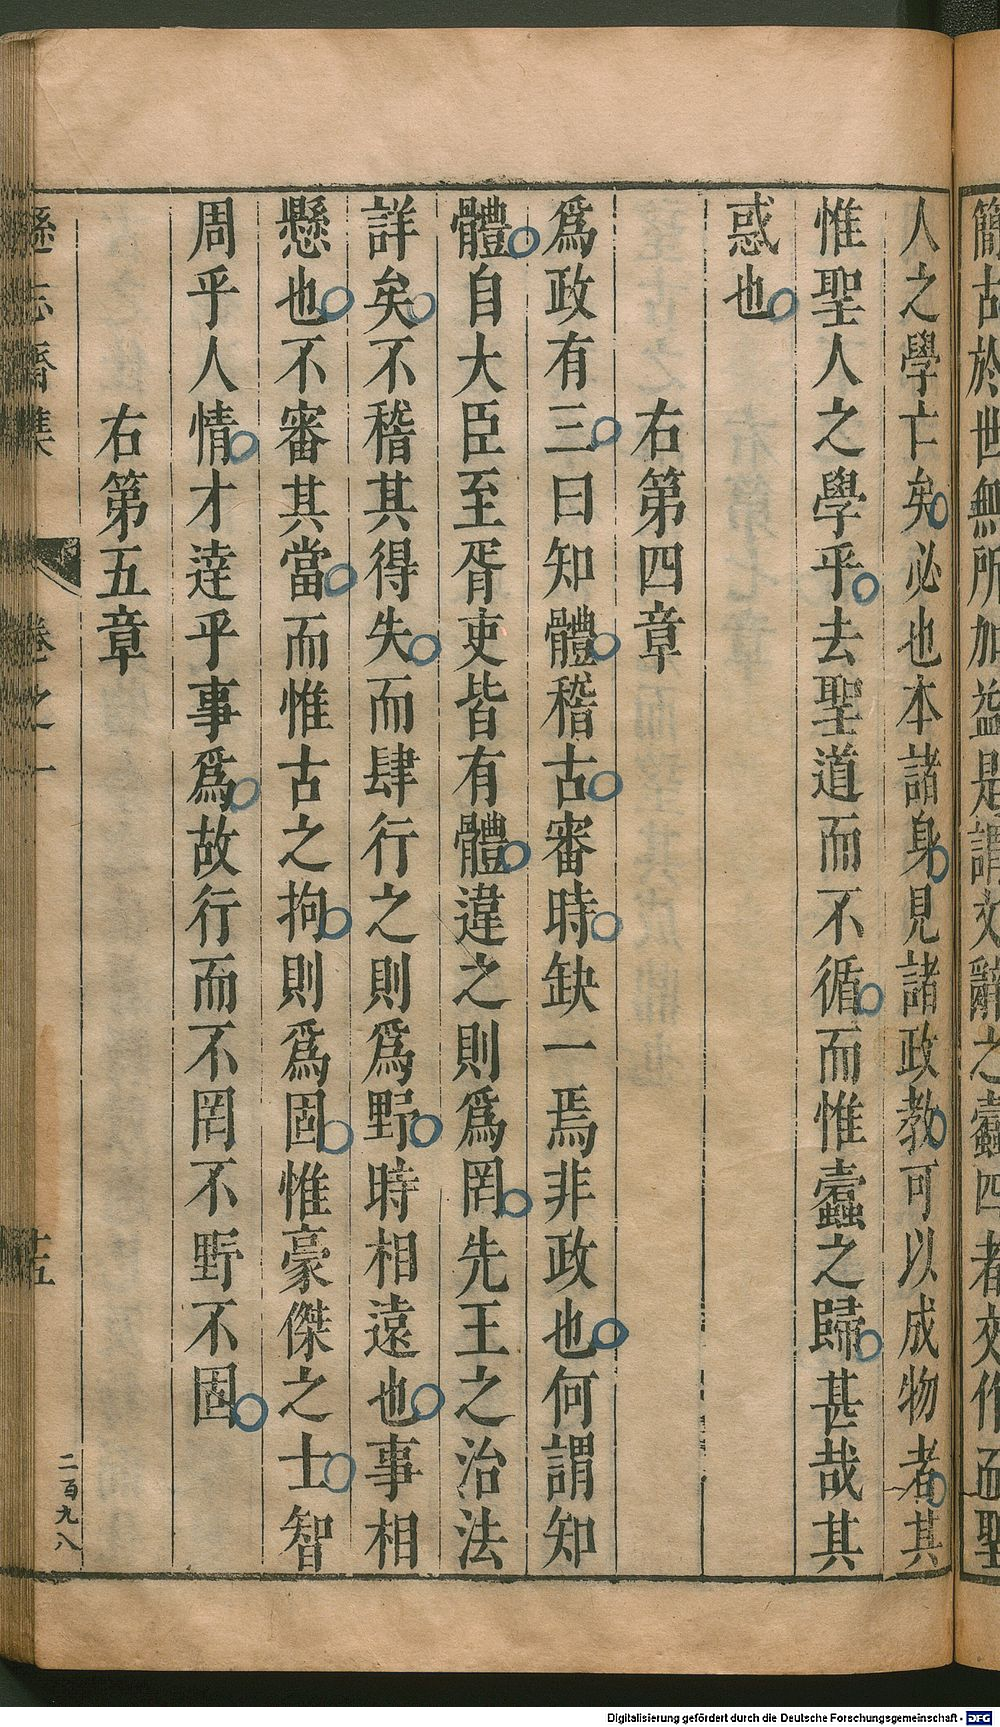 簡古於世無所加益是謂文辭之蠧四者交作而聖
人之學亡矣必也本諸身見諸政教可以成物者其
惟聖人之學乎去聖道而不循而惟蠹之歸甚哉其
惑也
右第四章
爲政有三曰知體稽古審時缺一焉非政也何謂知
體自大臣至胥吏皆有體違之則爲罔先王之治法
詳矣不稽其得失而肆行之則爲野時相遠也事相
懸也不審其當而惟古之拘則爲固惟豪傑之士智
周乎人情才達乎事爲故行而不罔不野不固
右第五章
遜志齋集 卷之一 十五
二百九八
Digitalisierung gefördert durch die Deutsche Forschungsgemeinschaft - DFG